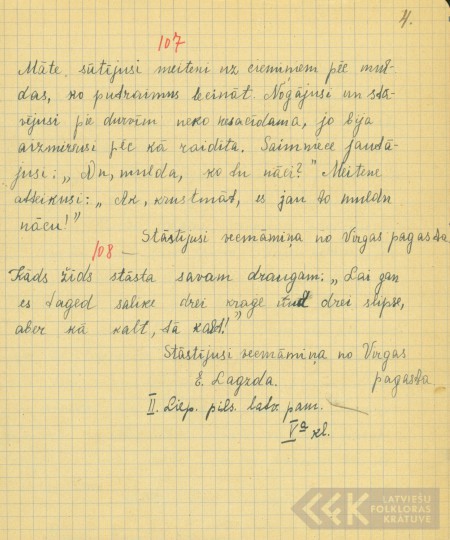 4.
107
Māte sūtījusi meiteni uz ciemiņiem pēc mul-
das, ko putraimus liecināt. Nogājusi un stā-
vējusi pie durvīm neko nesacīdama, jo bija
aizmirsusi pēc kā raidīta. Saimniece jautā-
jusi: „Nu, mulda, ko tu nāci?" Meitene
atteikusi: „Ak, krustmāt, es jau to muldu
nācu!"
Stāstījusi vecmāmiņa no Virgas pagasta
108
Kāds žīds stāsta savam draugam: „Lai gan
es taged salike drei krage und drei slipse,
aber kā kalt, tā kalt!"
Stāstījusi vecmāmiņa no Virgas
E. Lagzda. pagasta
II. Liep. pils. latv. pam.
Va kl.
LATVIEŠU
FOLKLORAS
KRĀTUVE